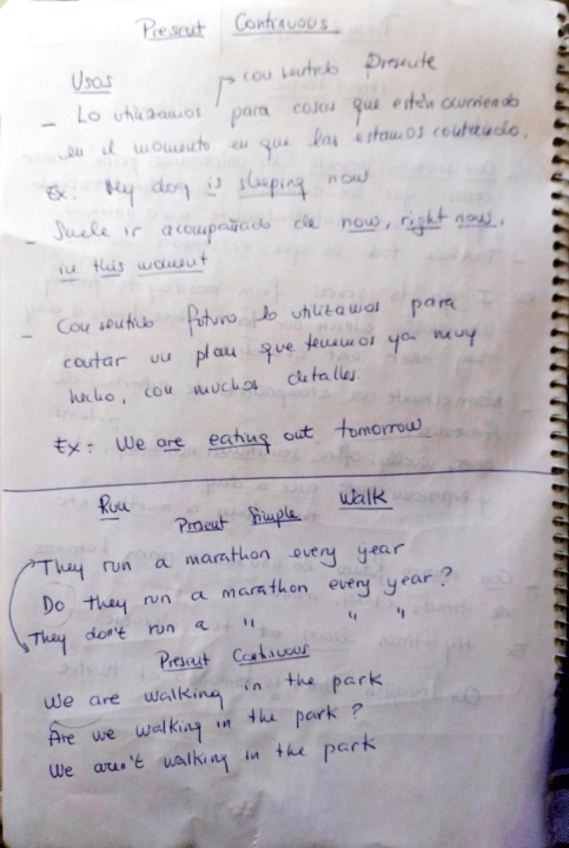 Present Continuous
Usos
con sentido Presente
- Lo utilizamos para cosas que estén ocurriendo
en el momento en que las estamos contando.
Ex: My dog is sleeping now
- Suele ir acompañado de now, right now,
in this moment
- Con sentido futuro lo utilizamos para
contar un plan que tenemos ya muy
hecho, con muchos detalles.
Ex: We are eating out tomorrow
Run Walk
Present Simple
They run a marathon every year
Do they run a marathon every year?
They don't run a " " "
Present Continuous
We are walking in the park
Are we walking in the park?
We aren't walking in the park